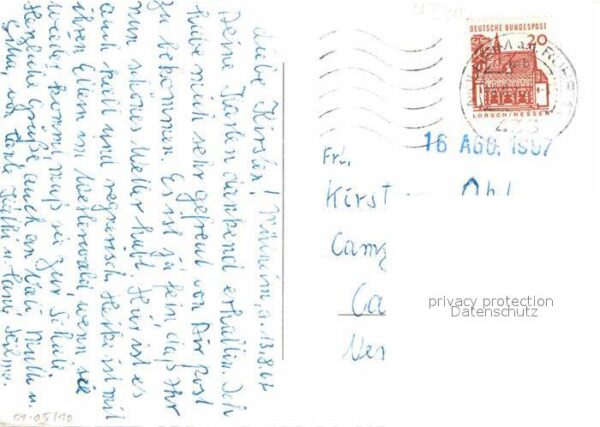 Liebe Kirsten! Mülheim, d. 13.8.67
Deine Karten dankend erhalten. Ich
habe mich sehr gefreut von Dir Post
zu bekommen. Es ist ja fein, daß Ihr
nun schönes Wetter habt. Hier ist es
auch kalt und regnerisch. Heike ist mit
ihren Eltern im Westerwald, wenn sie
wieder kommt, muß sie zur Schule.
Herzliche Grüße auch an Vati, Mutti u.
von Tante Käthe u. Tante
DEUTSCHE BUNDESPOST
20
LORSCH/HESSEN
16 AGO. 1967
Frl.
Kirst
Camp
Ca
privacy protection
Datenschutz
01-05/10